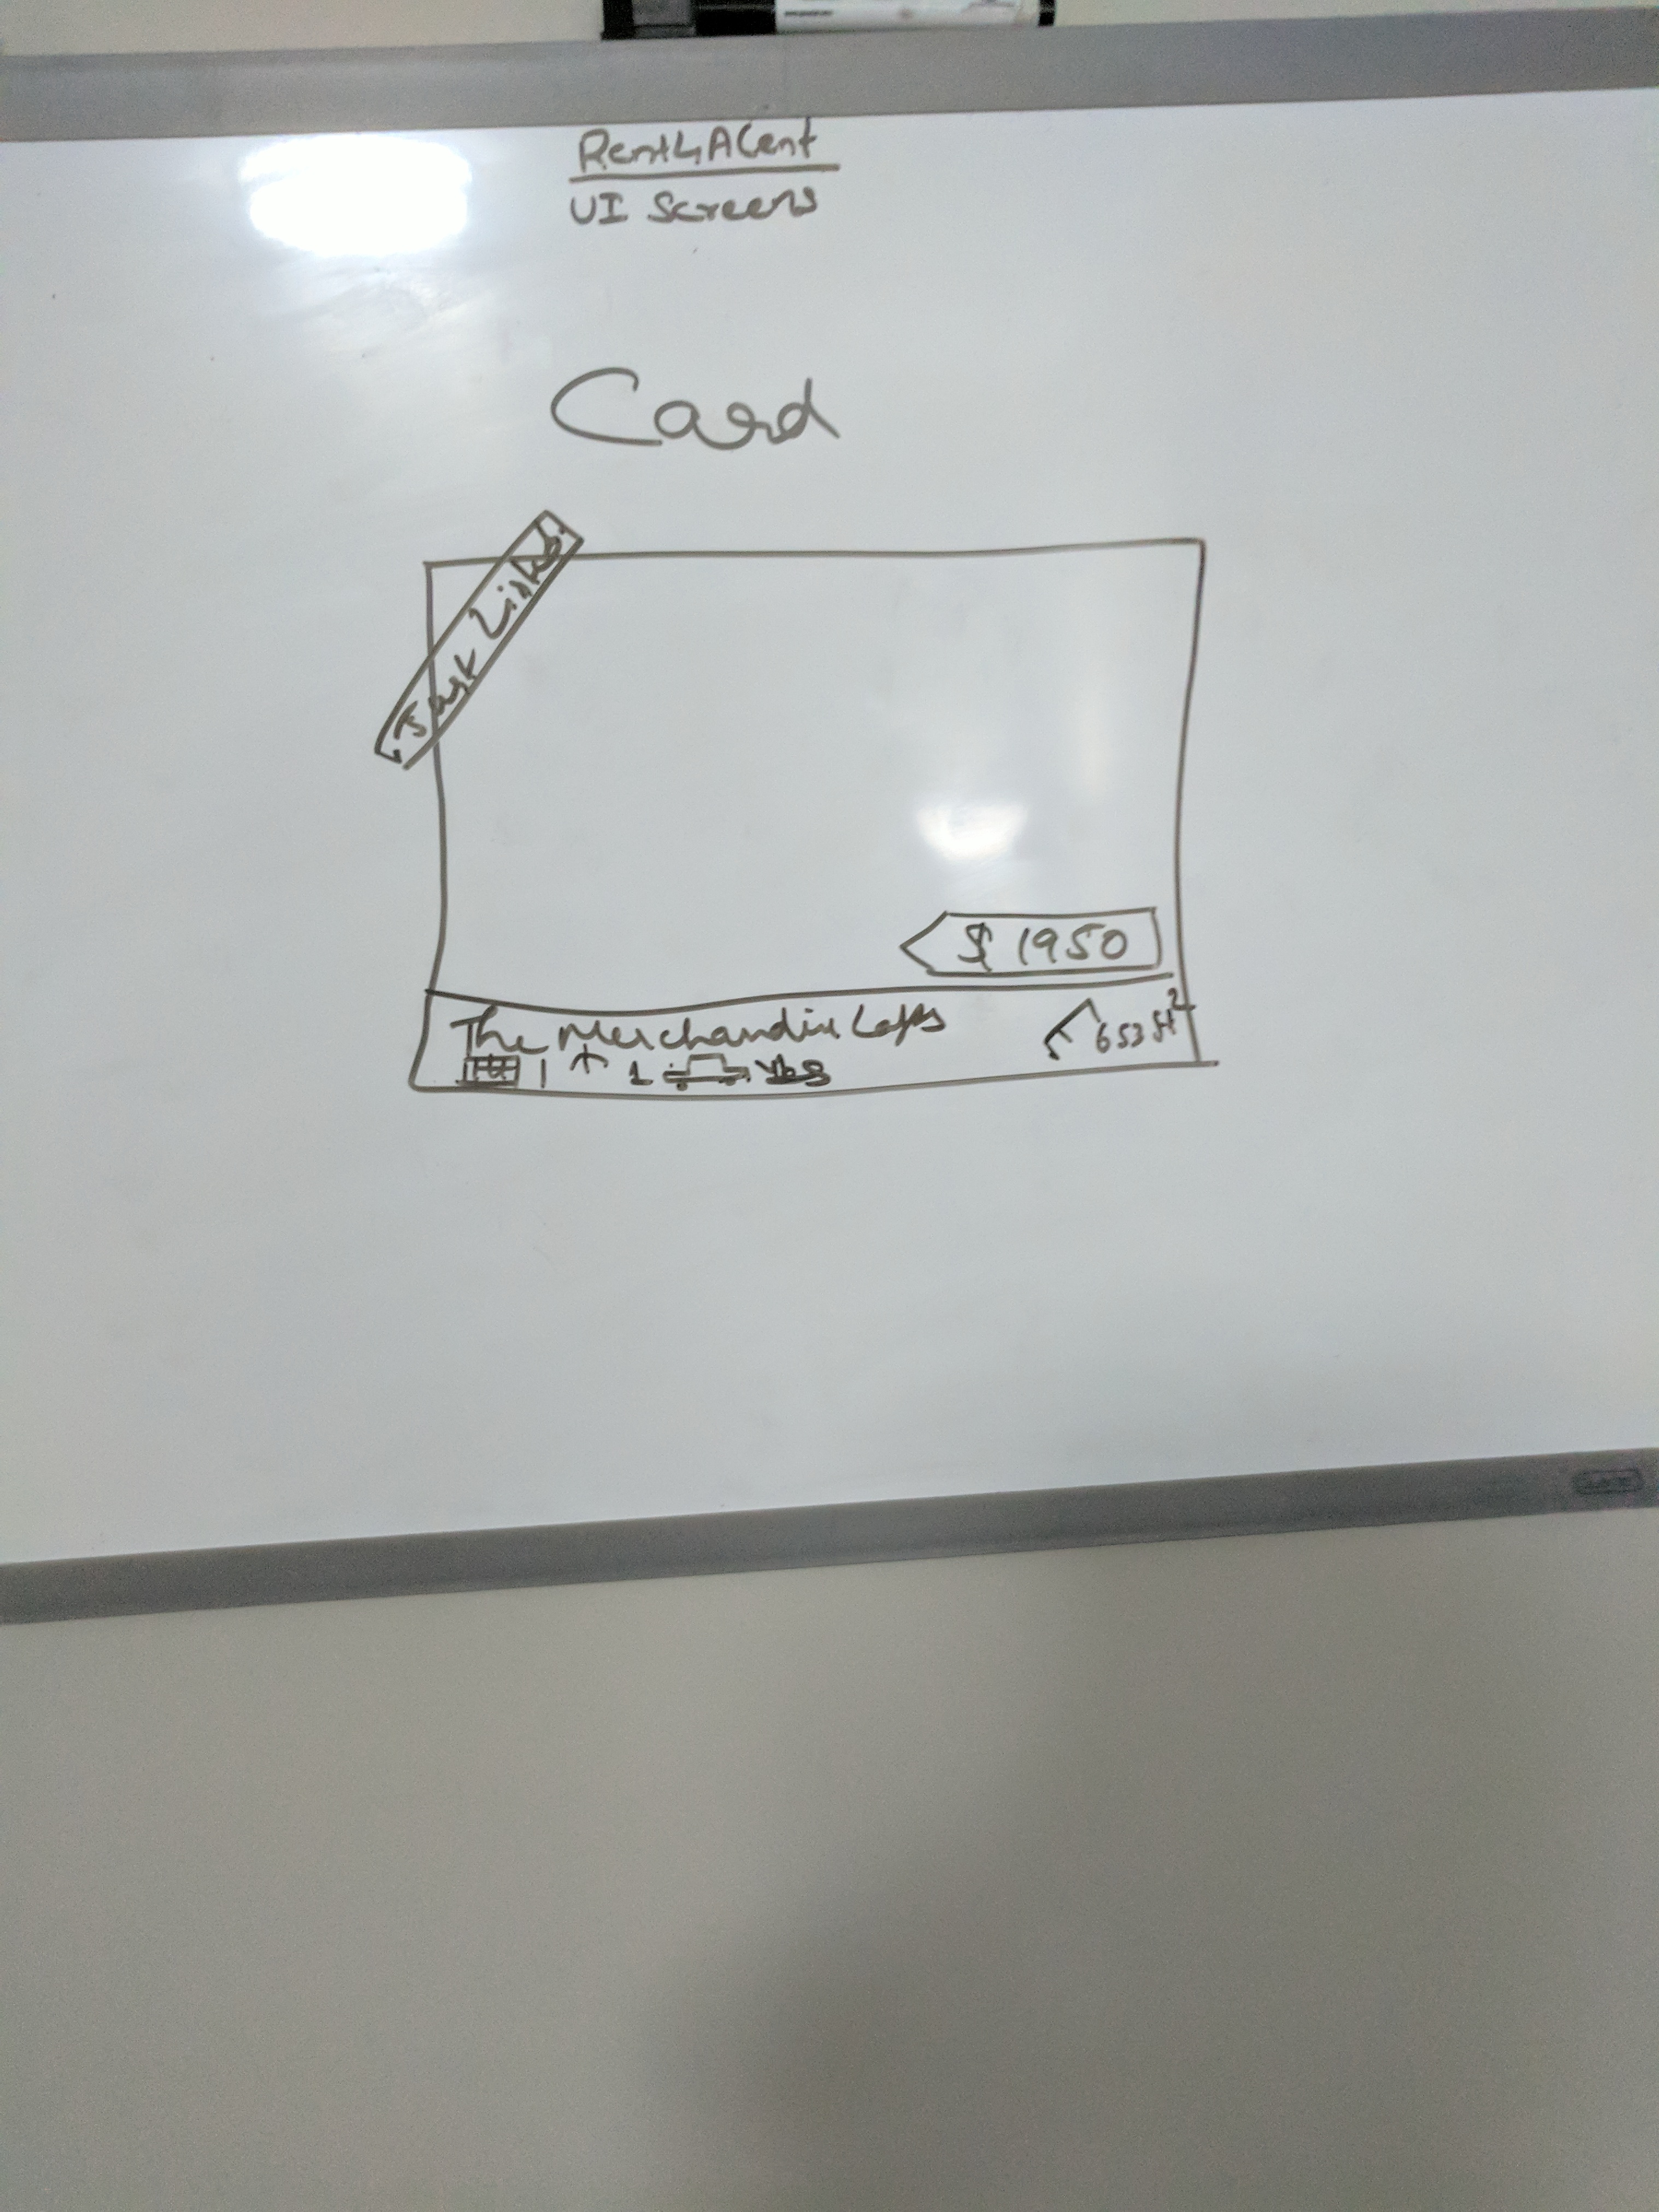 Rent4ACent
UI Screens
Card
Just Listed
$ 1950
The Merchandise Lofts
653 ft²
1 1 Yes